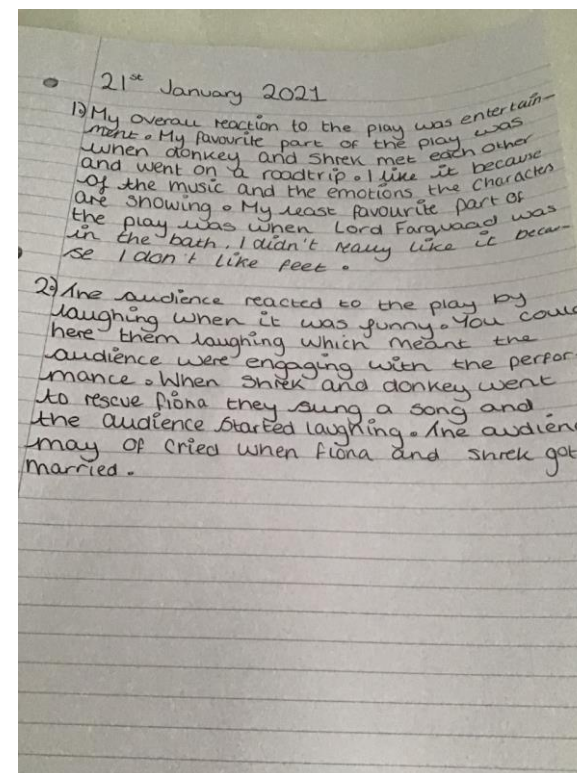 21st January 2021
1) My overall reaction to the play was entertain-
ment. My favourite part of the play was
when donkey and Shrek met each other
and went on a roadtrip. I like it because
of the music and the emotions the characters
are showing. My least favourite part of
the play was when Lord Farquaad was
in the bath. I didn't really like it becau-
se I don't like feet.
2) The audience reacted to the play by
laughing when it was funny. You could
here them laughing which meant the
audience were engaging with the perfor
mance. When Shrek and donkey went
to rescue fiona they sung a song and
the audience started laughing. The audien
may of cried when fiona and Shrek got
married.